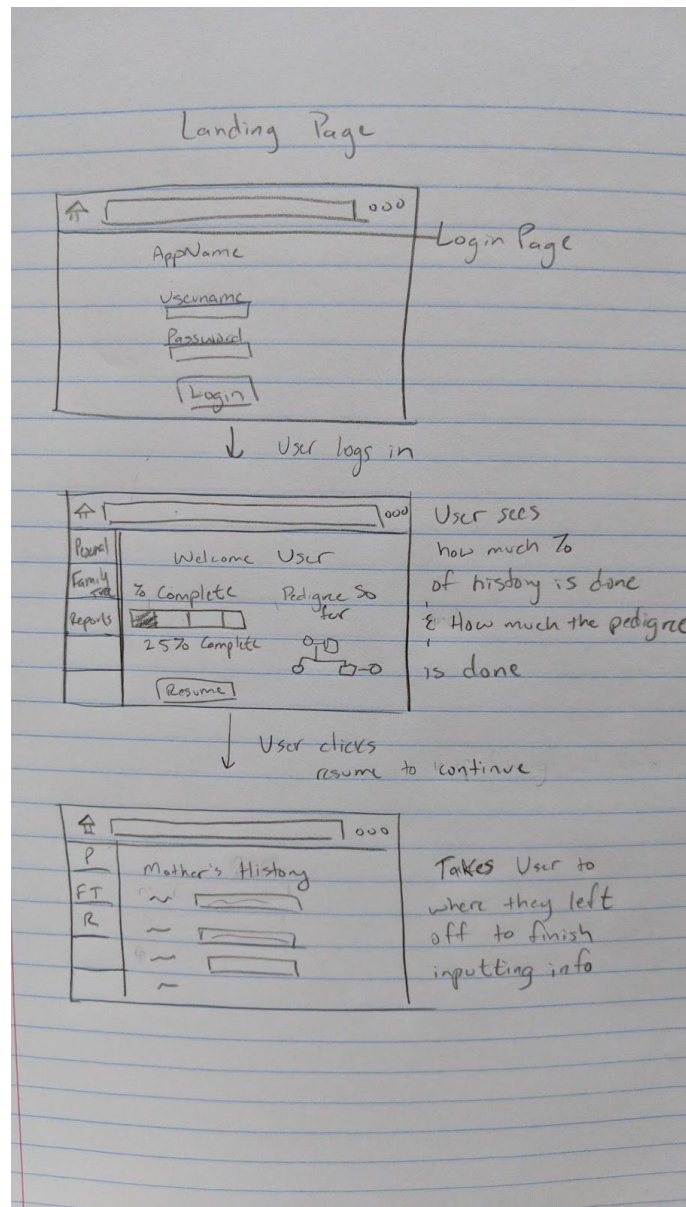 Landing Page
Login Page
AppName
Username
Password
Login
User logs in
Personal
Family
Tree
Reports
Welcome User
% Complete
25% Complete
Pedigree So
far
Resume
User sees
how much %
of history is done
& How much the pedigree
is done
User clicks
resume to continue
P
FT
R
Mother's History
Takes User to
where they left
off to finish
inputting info